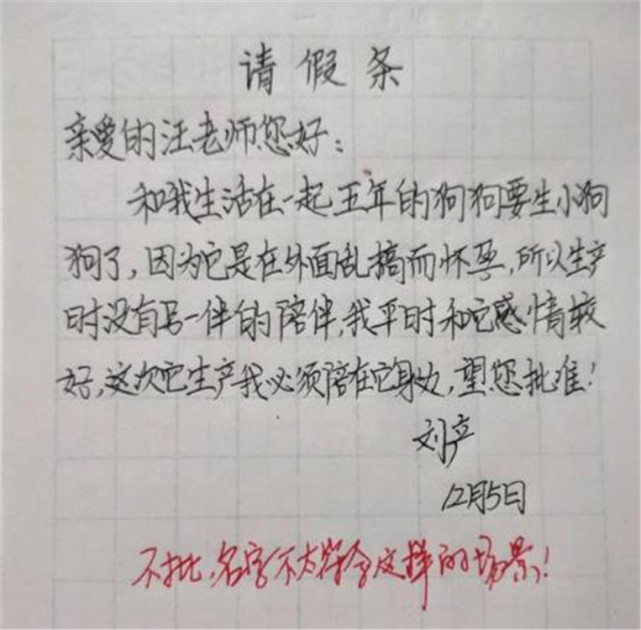 请假条
亲爱的汪老师您好：
和我生活在一起五年的狗狗要生小狗
狗了，因为它是在外面乱搞而怀孕，所以生产
时没有另一伴的陪伴，我平时和它感情较
好，这次它生产我必须陪在它身边，望您批准！
刘产
12月5日
不批，名字不太符合这样的场景！